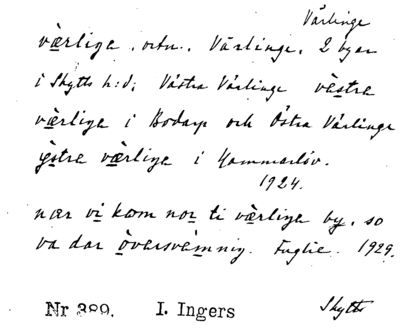 Värlinge
væ̀rliga, ortn., Värlinge, 2 byar
i Skytts h:d; Västra Värlinge væ̀stra
væ̀rliga i Bodarp och Östra Värlinge
ỳstra væ̀rliga i Hammarlöv.
1924.
nær vi kom nor ti væ̀rliga by, so
va dar ò̱varsvæmnig. Fuglie. 1929.
Nr 389. I. Ingers Skytts